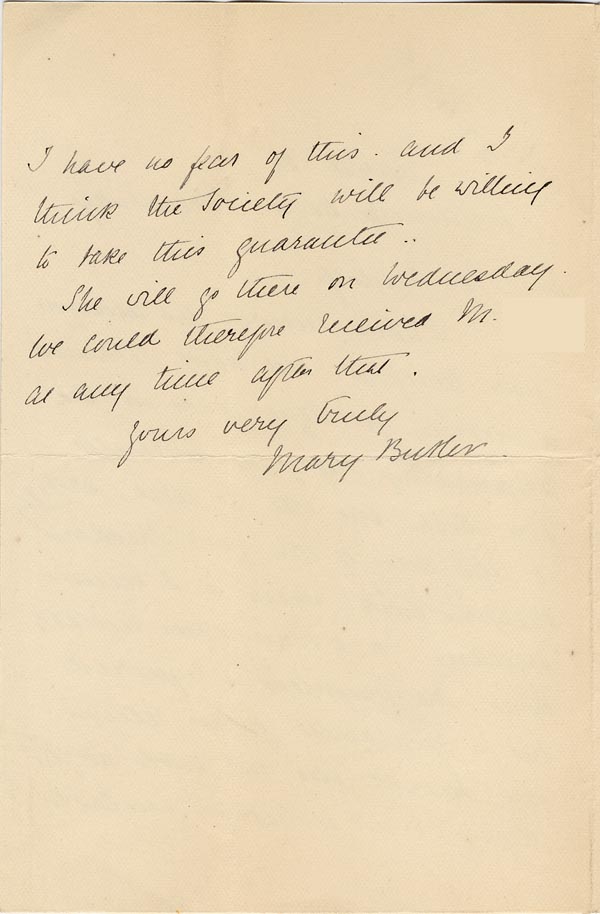 I have no fear of this. and I
think the Society will be willing
to take this guarantee..
She will go there on Wednesday.
We could therefore received M.
at any time after that.
Yours very truly
Mary Butler.